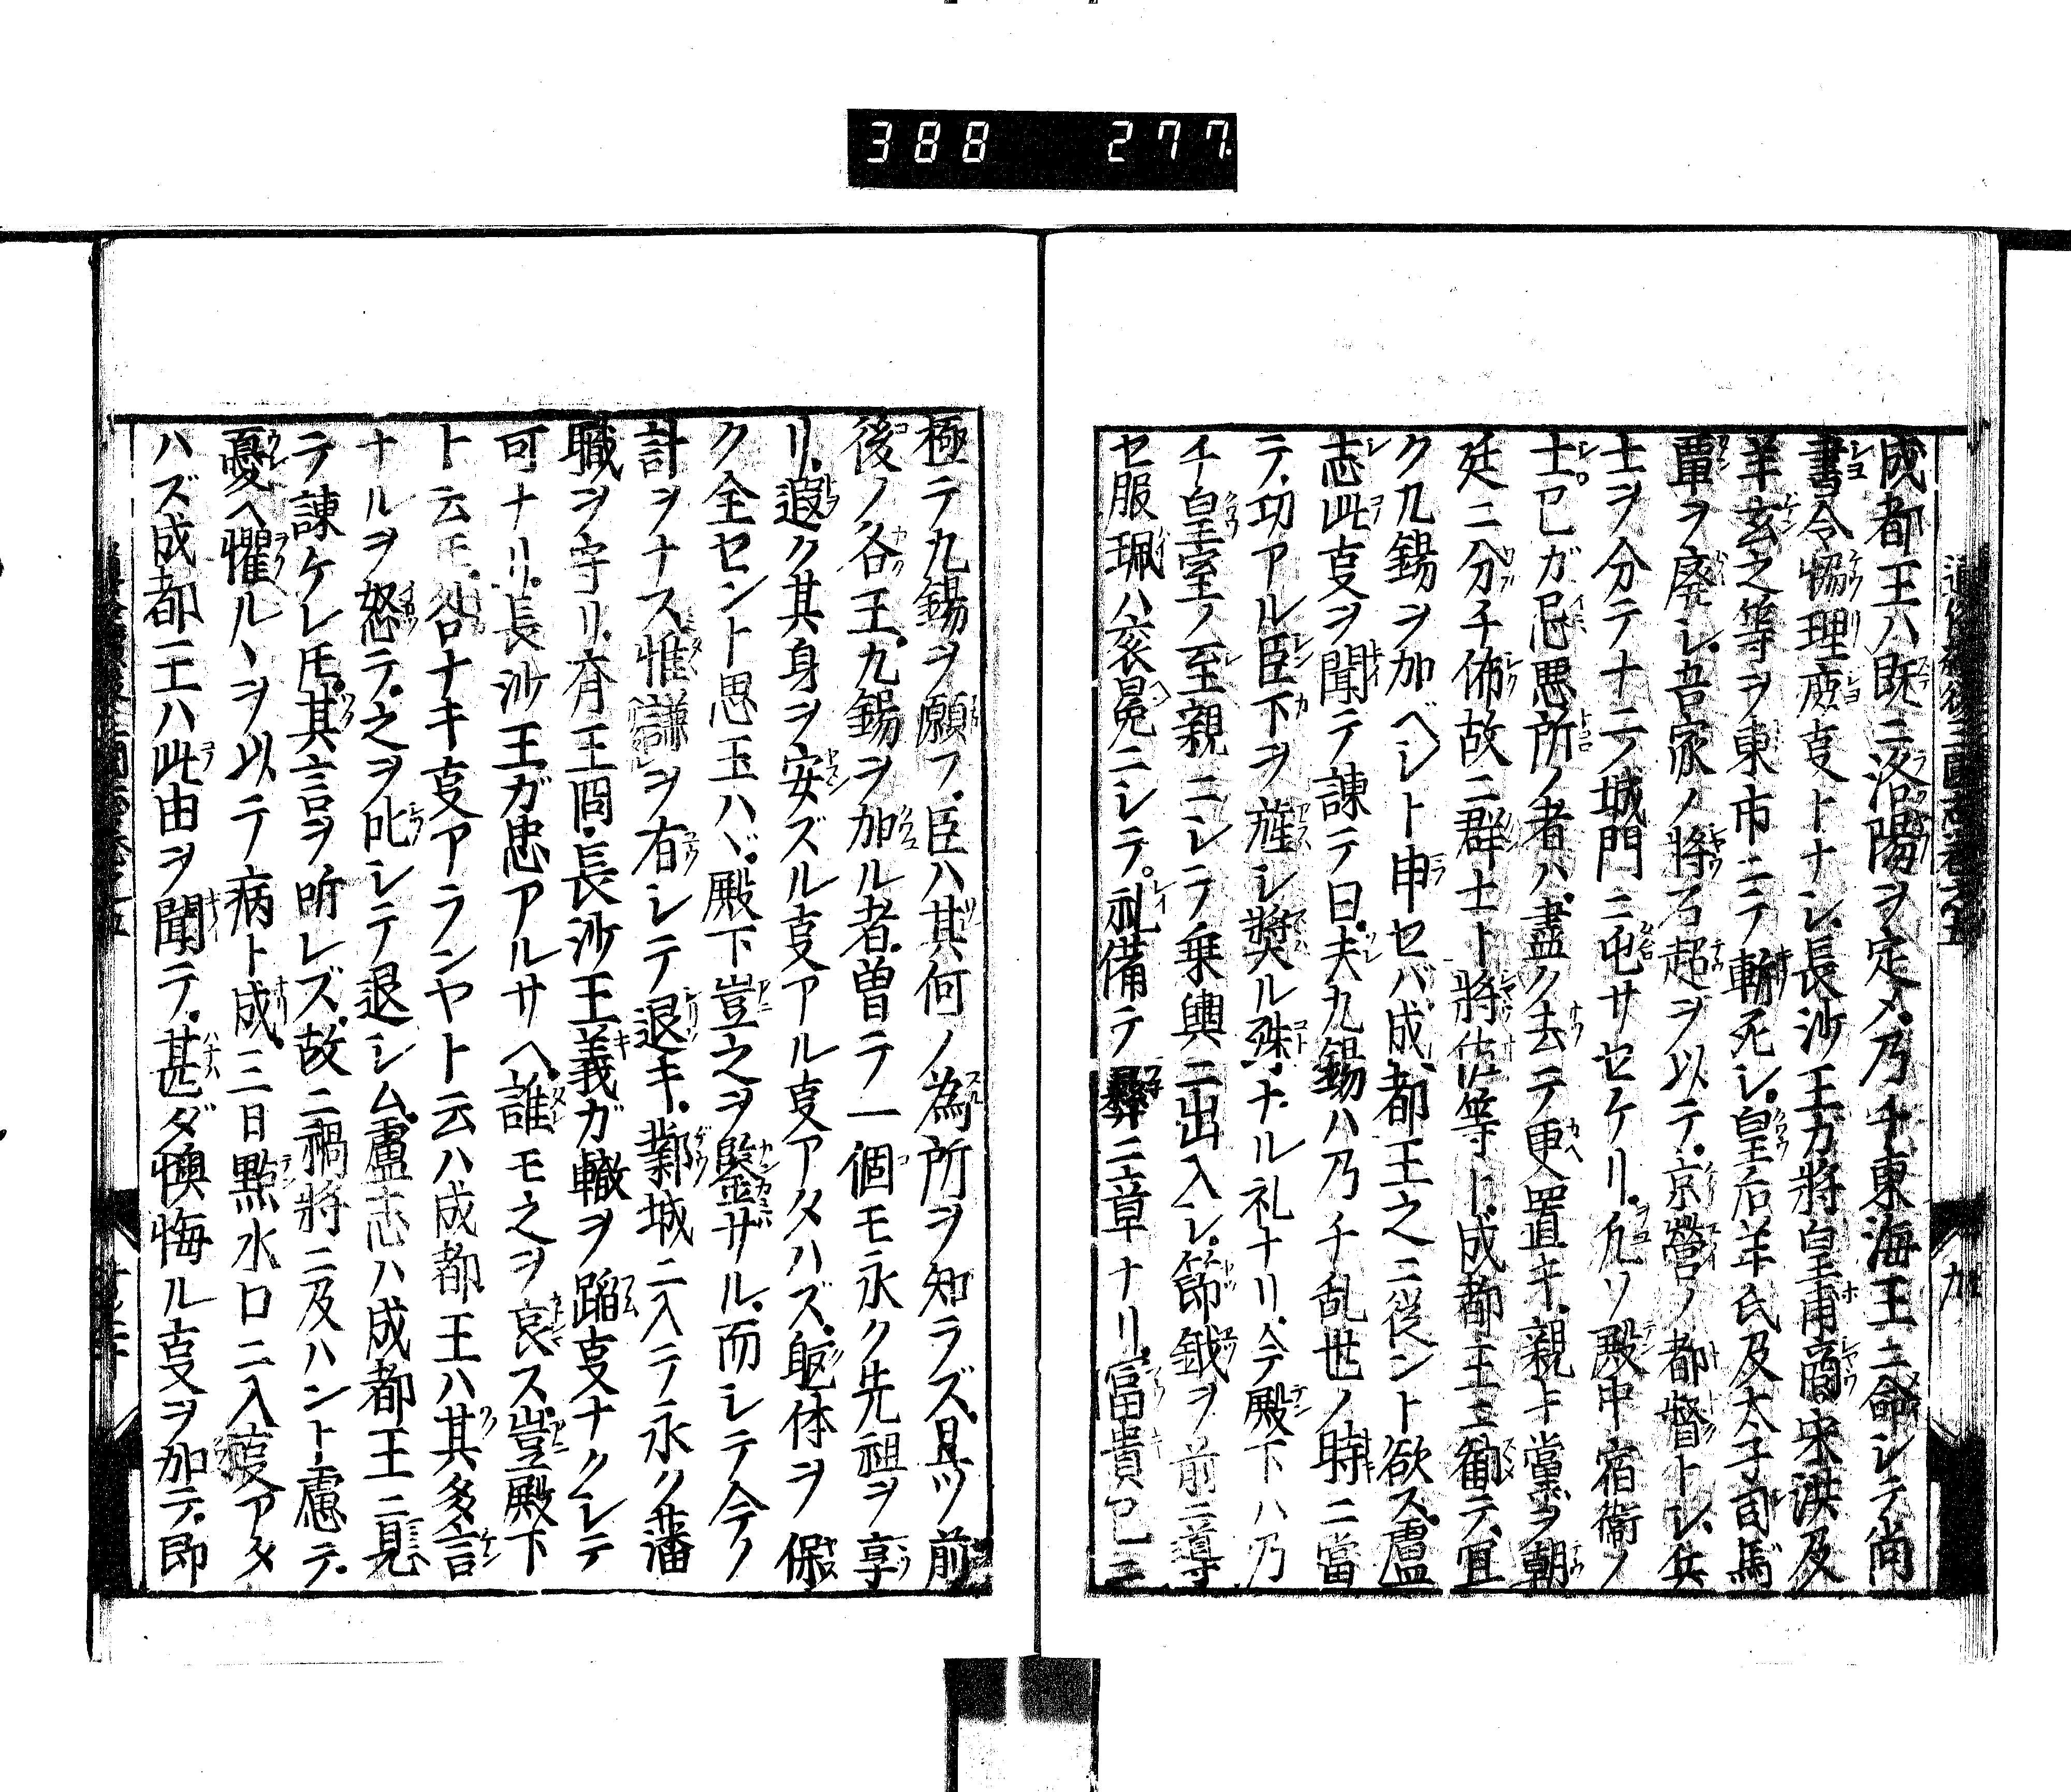 388 277
成都王ハ既ニ洛陽ヲ定メ乃チ東海王ニ命シテ尚
書令協理庶叓トナシ長沙王ガ將皇甫商宋洪及
羊玄之等ヲ東市ニテ斬死シ皇后羊氏及太子司馬
覃ヲ廃シ吾家ノ將石超ヲ以テ京營ノ都督トシ兵
士ヲ分テナニノ城門ニ屯サセケリ凢ソ殿中宿衞ノ
士己ガ忌悪所ノ者ハ盡ク去テ更置キ親キ黨ヲ朝
廷ニ分チ佈故ニ群士ト將佐等ト成都王ニ勧テ宜
ク九錫ヲ加ベシト申セバ成都王之ニ従ント欲ス盧
志此叓ヲ聞テ諌テ曰夫九錫ハ乃チ乱世ノ時ニ當
テ功アル臣下ヲ旌シ奬ル殊ナル礼ナリ今殿下ハ乃
チ皇室ノ至親ニシテ乗輿ニ出入シ節鉞ヲ前ニ導
セ服珮ハ衮冕ニシテ礼備テ彝ニ章ナリ富貴已ニ
極テ九錫ヲ願フ臣ハ其何ノ為所ヲ知ラズ且ツ前
後ノ各王九錫ヲ加ル者曽テ一個モ永ク先祖ヲ享
リ遐ク其身ヲ安ズル叓アル叓アタハズ躯体ヲ保
ク全セント思玉ハヾ殿下豈之ヲ鑒ザル而シテ今ノ
計ヲナス惟謙ヲ右シテ退キ鄴城ニ入テ永ク藩
職ヲ守リ斉王冏長沙王義ガ轍ヲ蹈叓ナクシテ
可ナリ長沙王ガ忠アルサヘ誰モ之ヲ哀ス豈殿下
ト云圧咎ナキ叓アランヤト云ハ成都王ハ其多言
ナルヲ怒テ之ヲ叱シテ退シム盧志ハ成都王ニ見
テ諌ケレ圧其言ヲ听レズ故ニ禍將ニ及ハント慮テ
憂ヘ懼ルヽヲ以テ病ト成三日點水口ニ入叓アタ
ハズ成都王ハ此由ヲ聞テ甚ダ懊悔ル叓ヲ加テ即
九